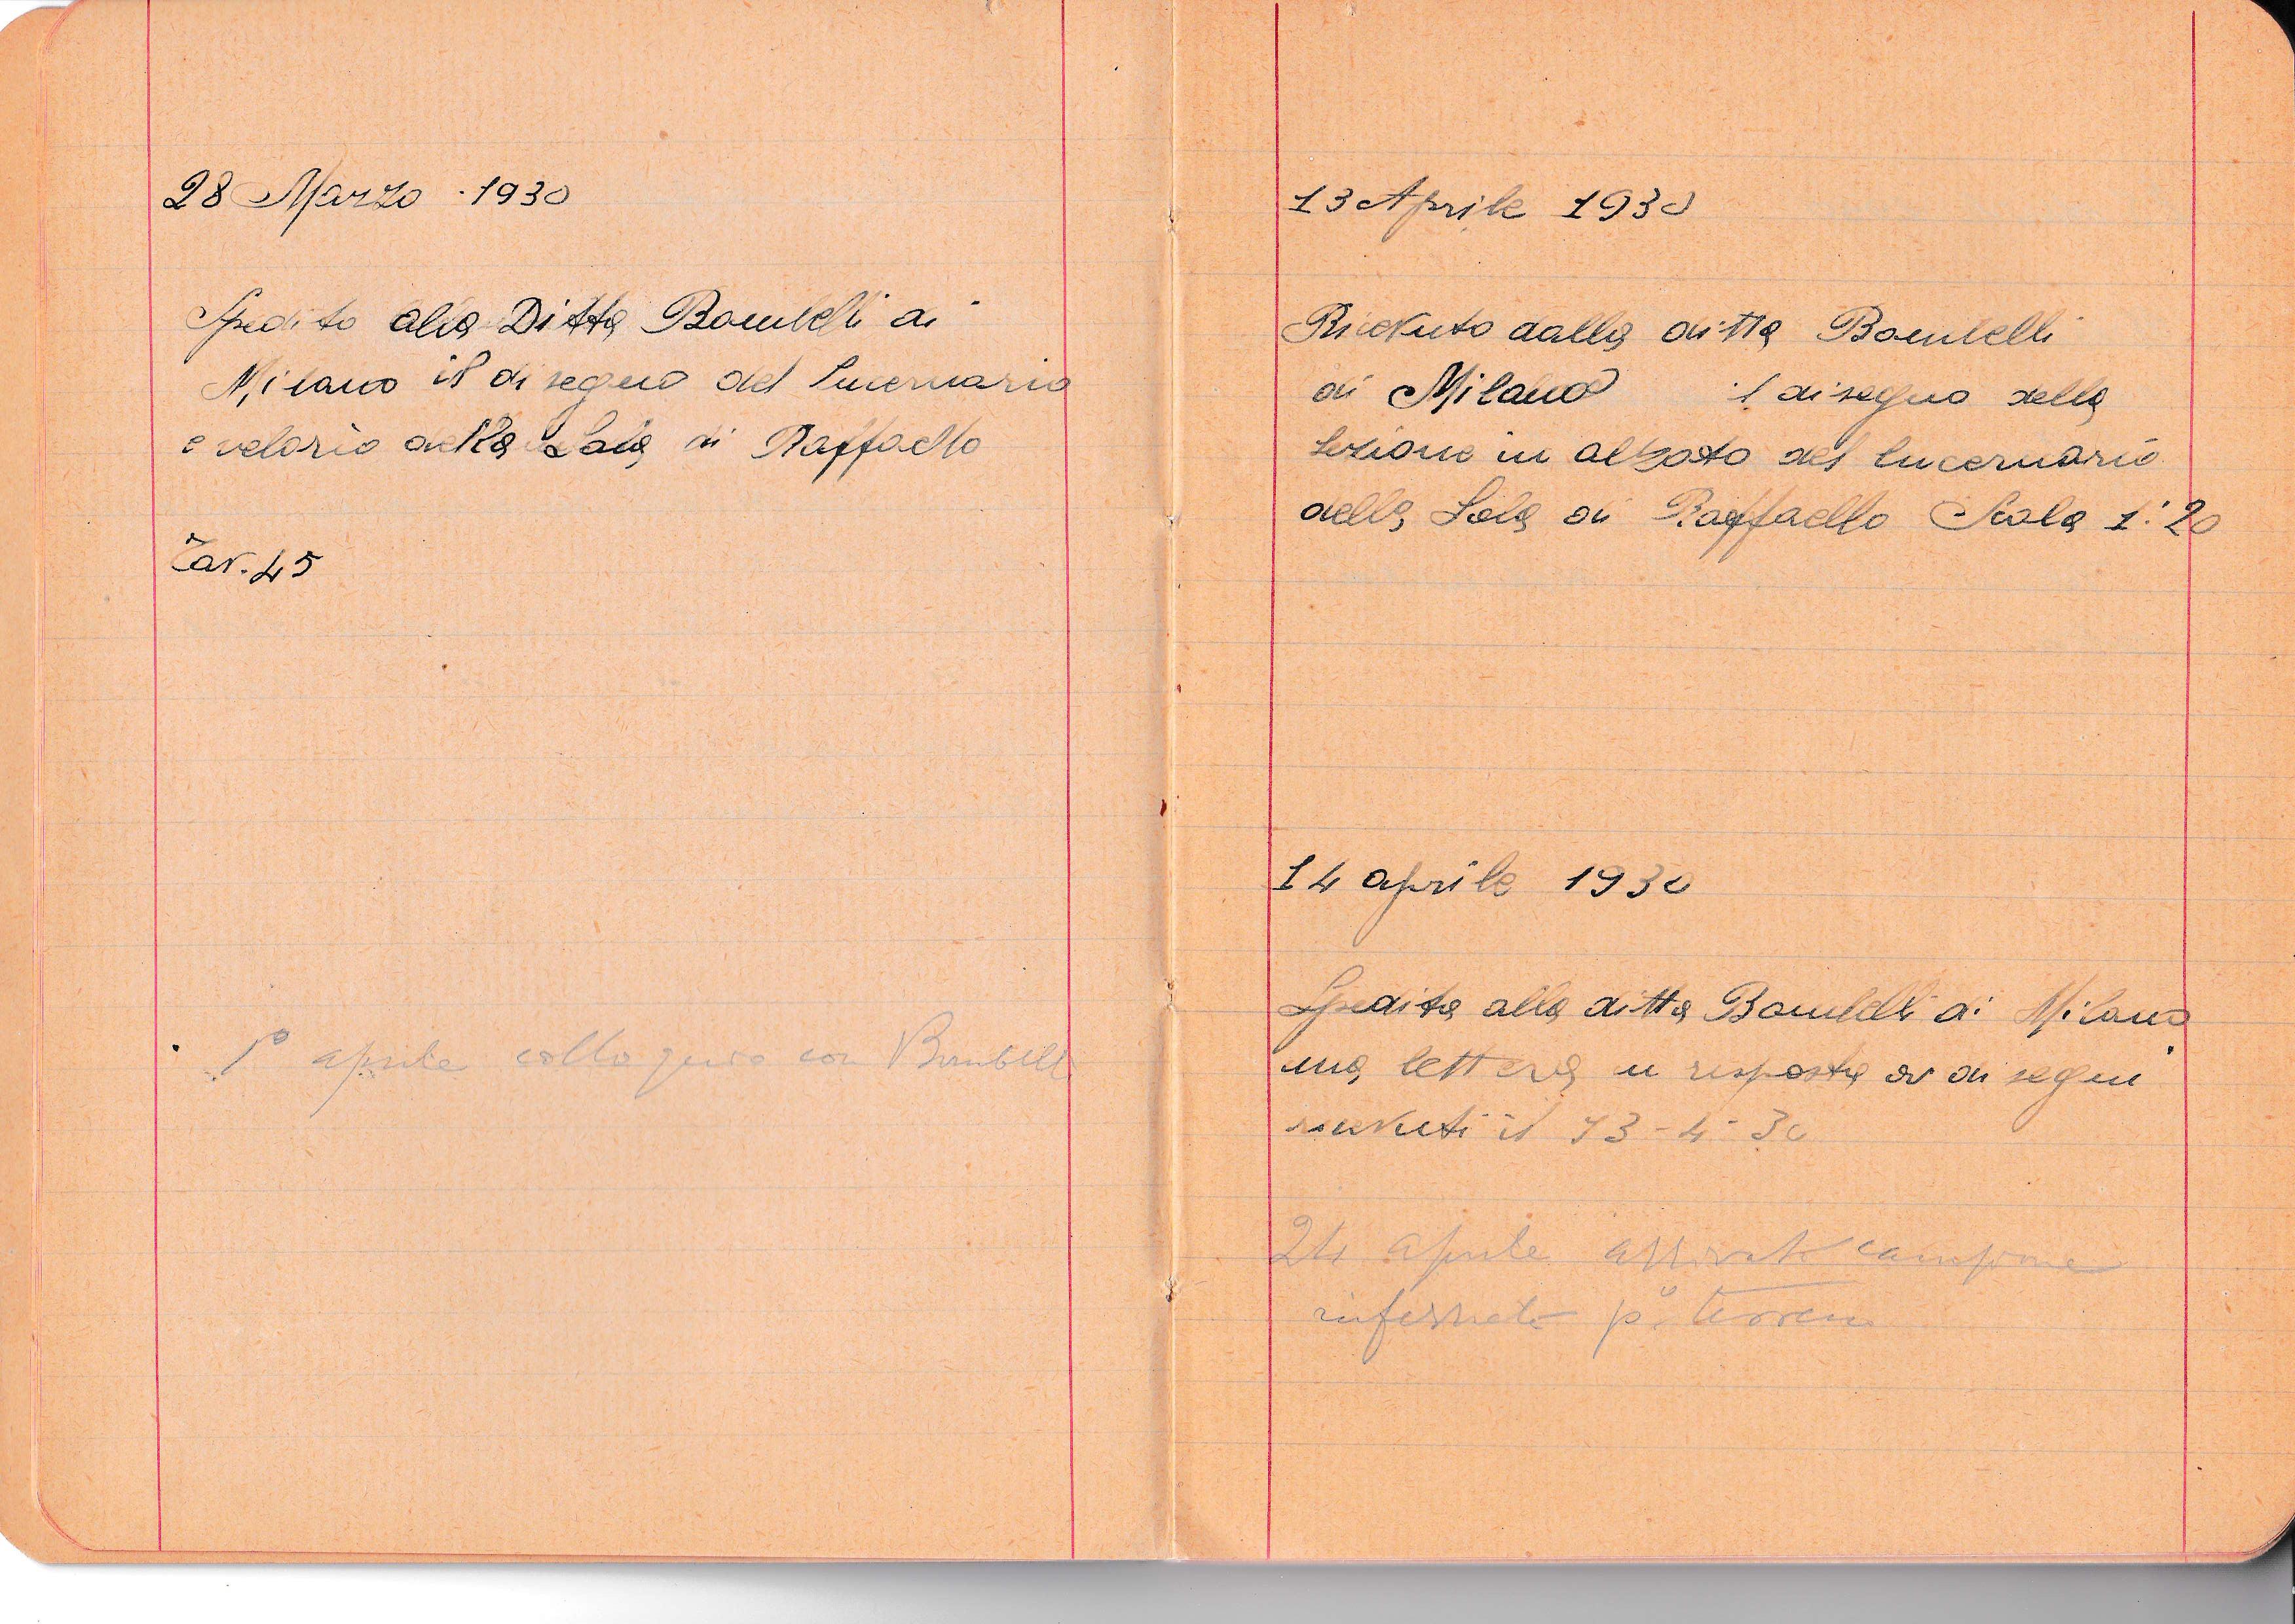 28 Marzo · 1930
Spedito alla Ditta Bombelli di
Milano il disegno del lucernario
e velario della Sala di Raffaello
Tav. 45
1° aprile colloquio con Bombelli
13 Aprile 1930
Ricevuto dalla ditta Bombelli
di Milano il disegno della
sezione in alzato del lucernario
della Sala di Raffaello Scala 1:20
14 aprile 1930
Spedita alla ditta Bombelli di Milano
una lettera in risposta ai disegni
ricevuti il 13-4-30
24 aprile arrivato campione
inferriata p. terreno